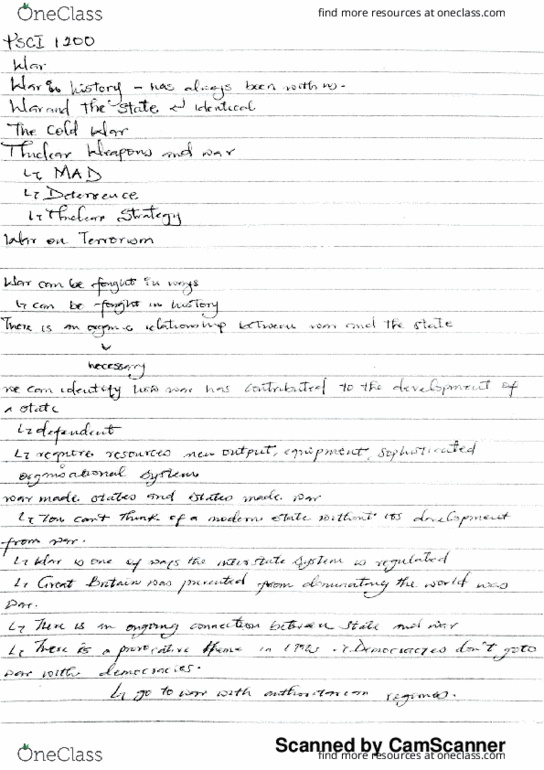 OneClass
find more resources at oneclass.com
PSCI 1200
War
War in history - has always been with us.
War and the state identical
The Cold War
Nuclear Weapons and war
↳ MAD
↳ Deterrence
↳ Nuclear Strategy
War on Terrorism
War can be fought in ways
↳ can be fought in history
There is an organic relationship between war and the state
necessary
we can identify how war has contributed to the development of
a state
↳ dependent
↳ require resources new output, equipment, sophisticated
organisational system
war made states and states made war
↳ You can't think of a modern state without its development
from war.
↳ War is one of ways the interstate system is regulated
↳ Great Britain was prevented from dominating the world was
war.
↳ There is an ongoing connection between state and war
↳ There is a provocative theme in Democracies don't go to
war with democracies.
↳ go to war with authoritarian regimes.
Scanned by CamScanner
OneClass
find more resources at oneclass.com